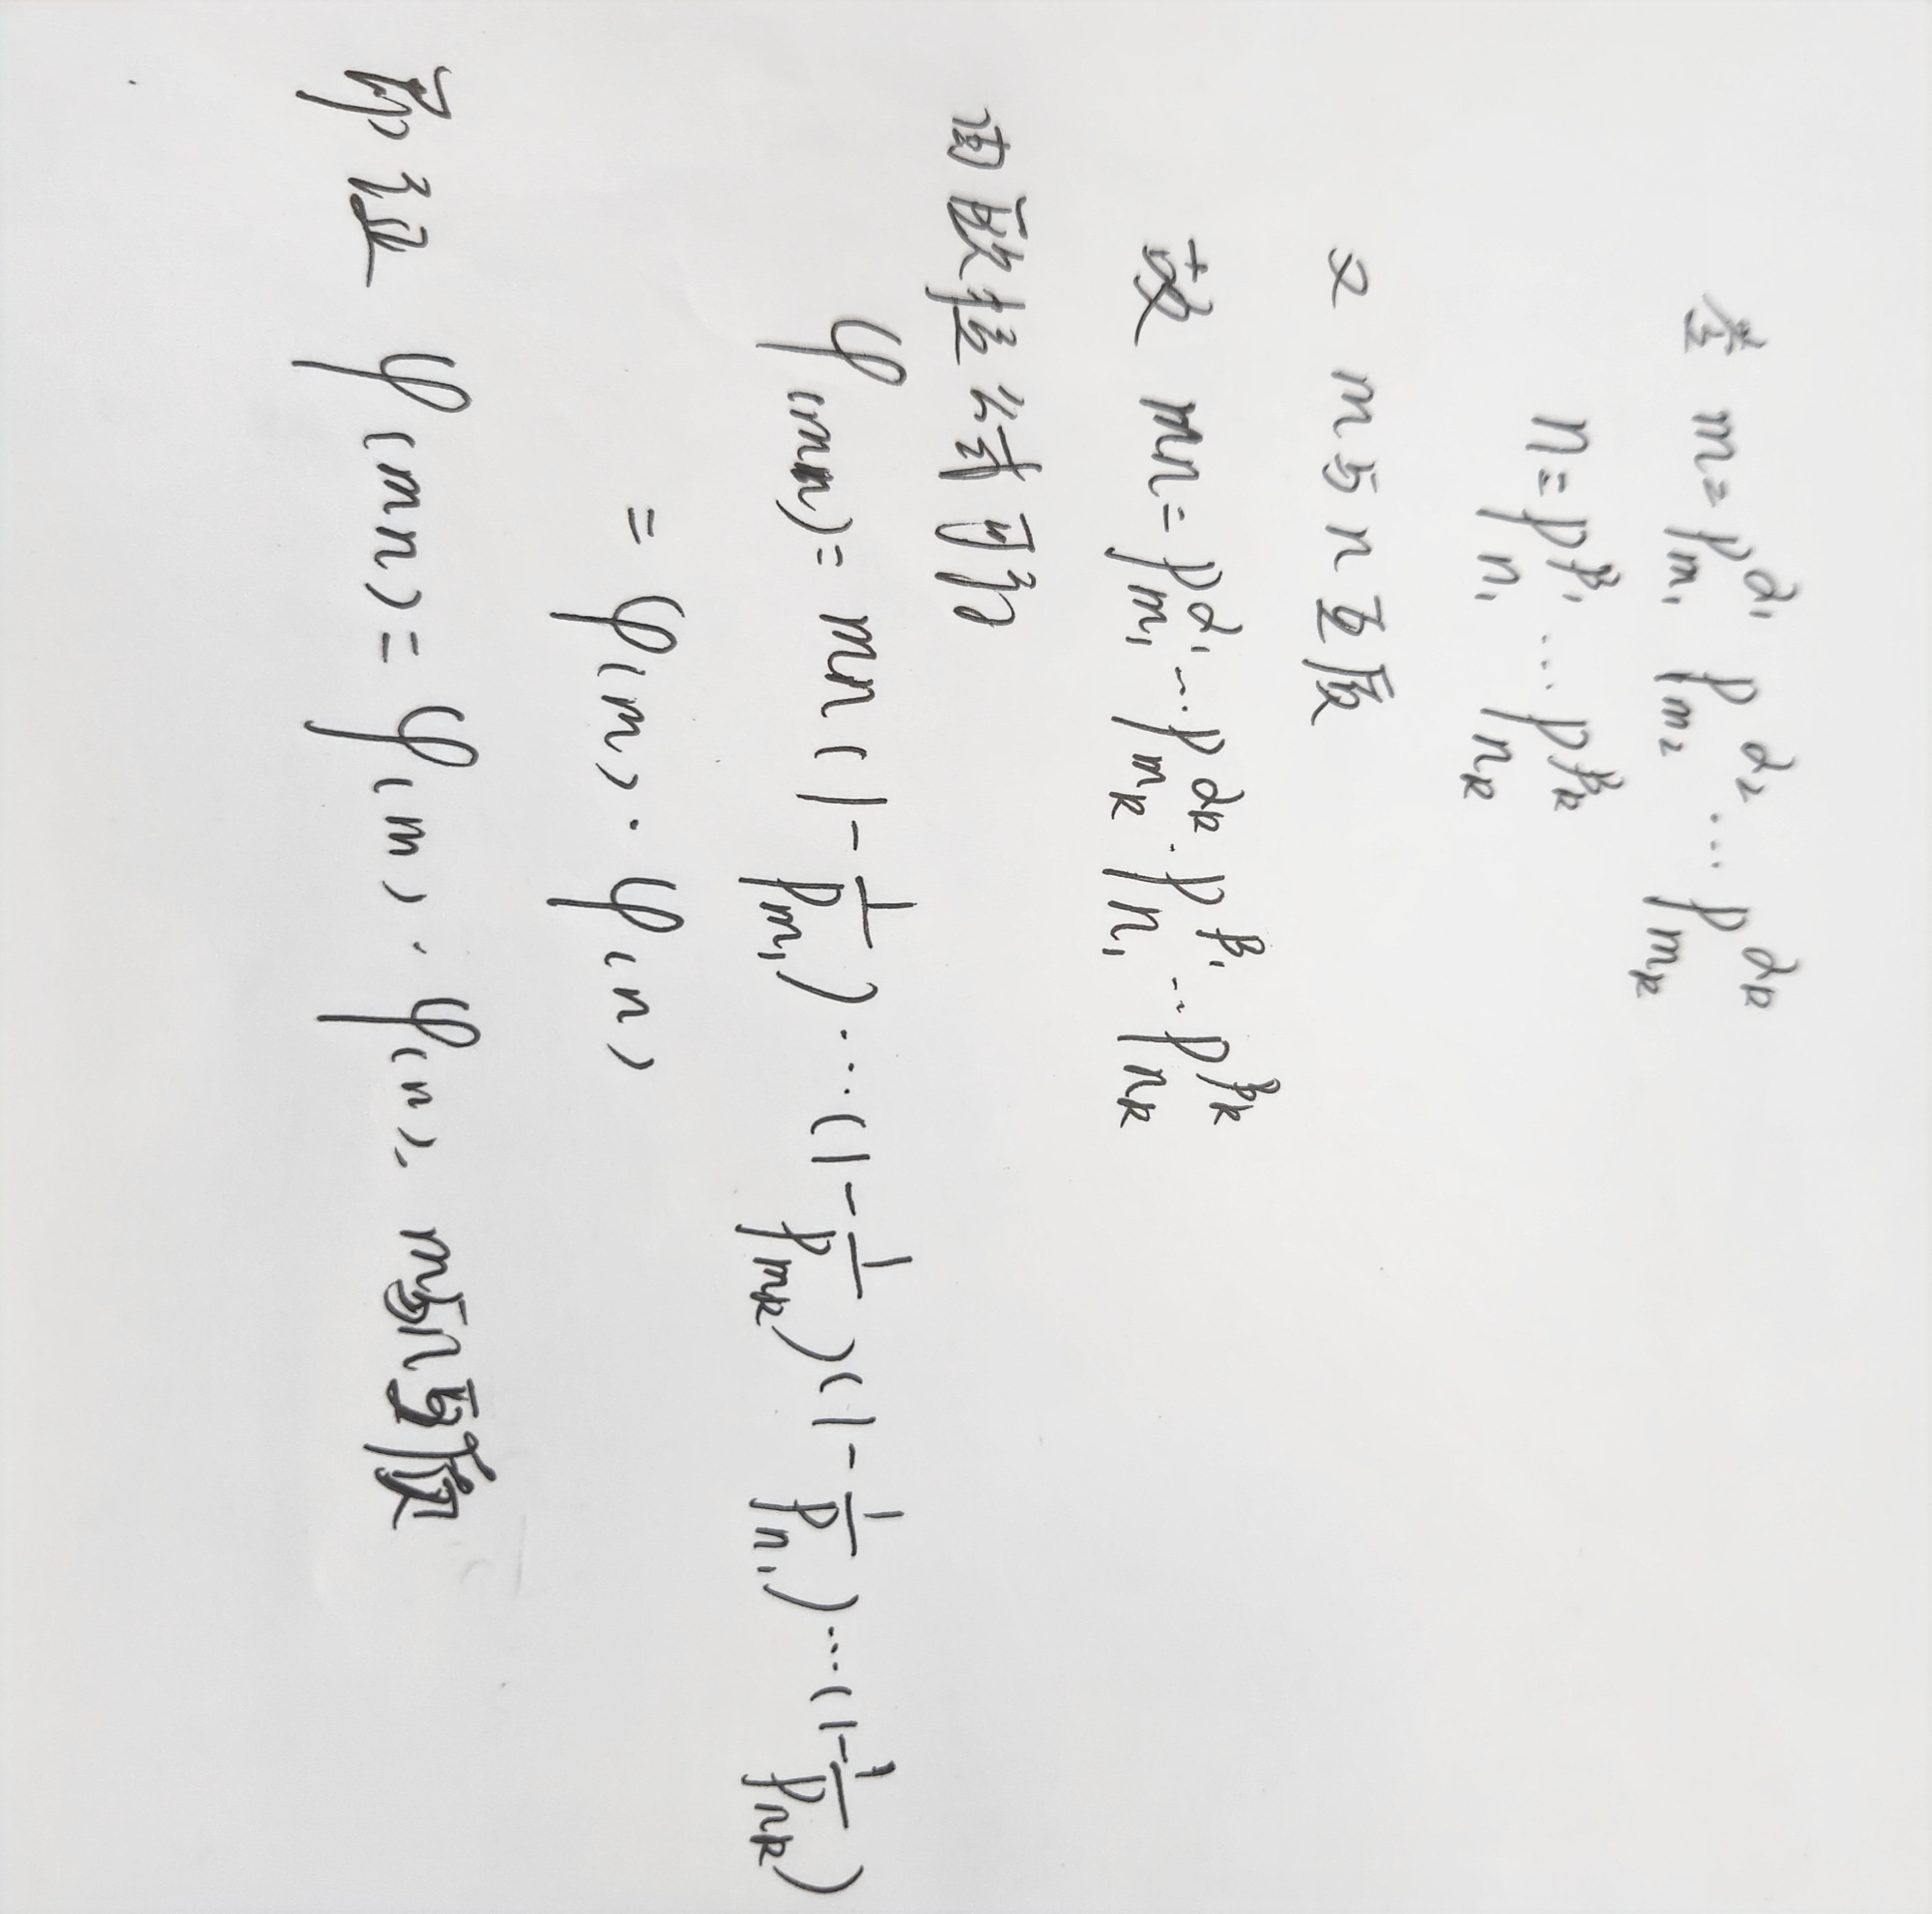 若 m = p_{m_1}^{α_1} p_{m_2}^{α_2} ⋯ p_{m_k}^{α_k}
n = p_{n_1}^{β_1} ⋯ p_{n_k}^{β_k}
又 m与n互质
故 mn = p_{m_1}^{α_1} ⋯ p_{m_k}^{α_k} · p_{n_1}^{β_1} ⋯ p_{n_k}^{β_k}
由欧拉公式可得
φ(mn) = mn (1 - 1/p_{m_1}) ⋯ (1 - 1/p_{m_k}) (1 - 1/p_{n_1}) ⋯ (1 - 1/p_{n_k})
= φ(m) · φ(n)
即证 φ(mn) = φ(m) · φ(n), m与n互质